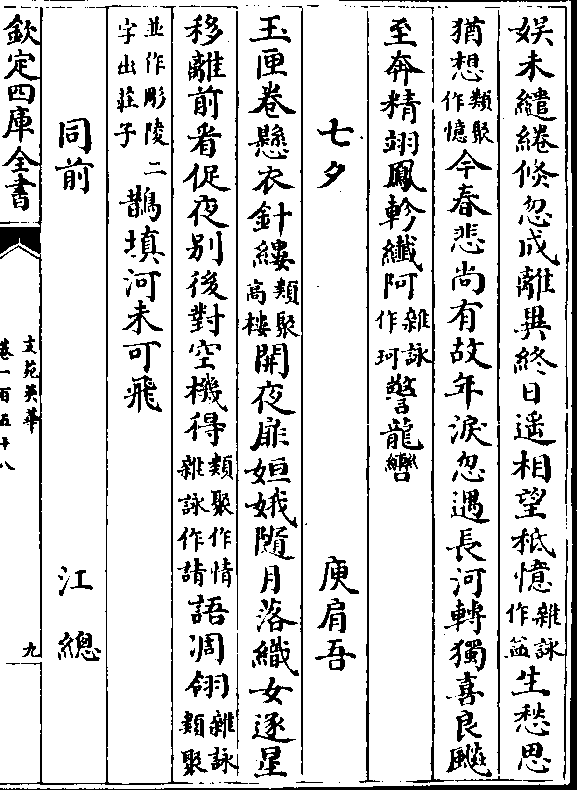 娱未繾綣倐忽成離異終日遥相望秪憶雜詠作益生愁思
猶想類聚作憶今春悲尚有故年淚忽遇長河轉獨喜良飈
至奔精翊鳳軫纖阿雜詠作珂警龍轡
七夕 庾肩吾
玉匣卷懸衣針縷類聚高樓開夜扉姮娥隨月落織女逐星
移離前看促夜别後對空機得類聚作情雜詠作請語凋翎雜詠類聚
並作彫陵二字出莊子鵲填河未可飛
同前 江總
欽定四庫全書
文苑英華
卷一百五十八
九